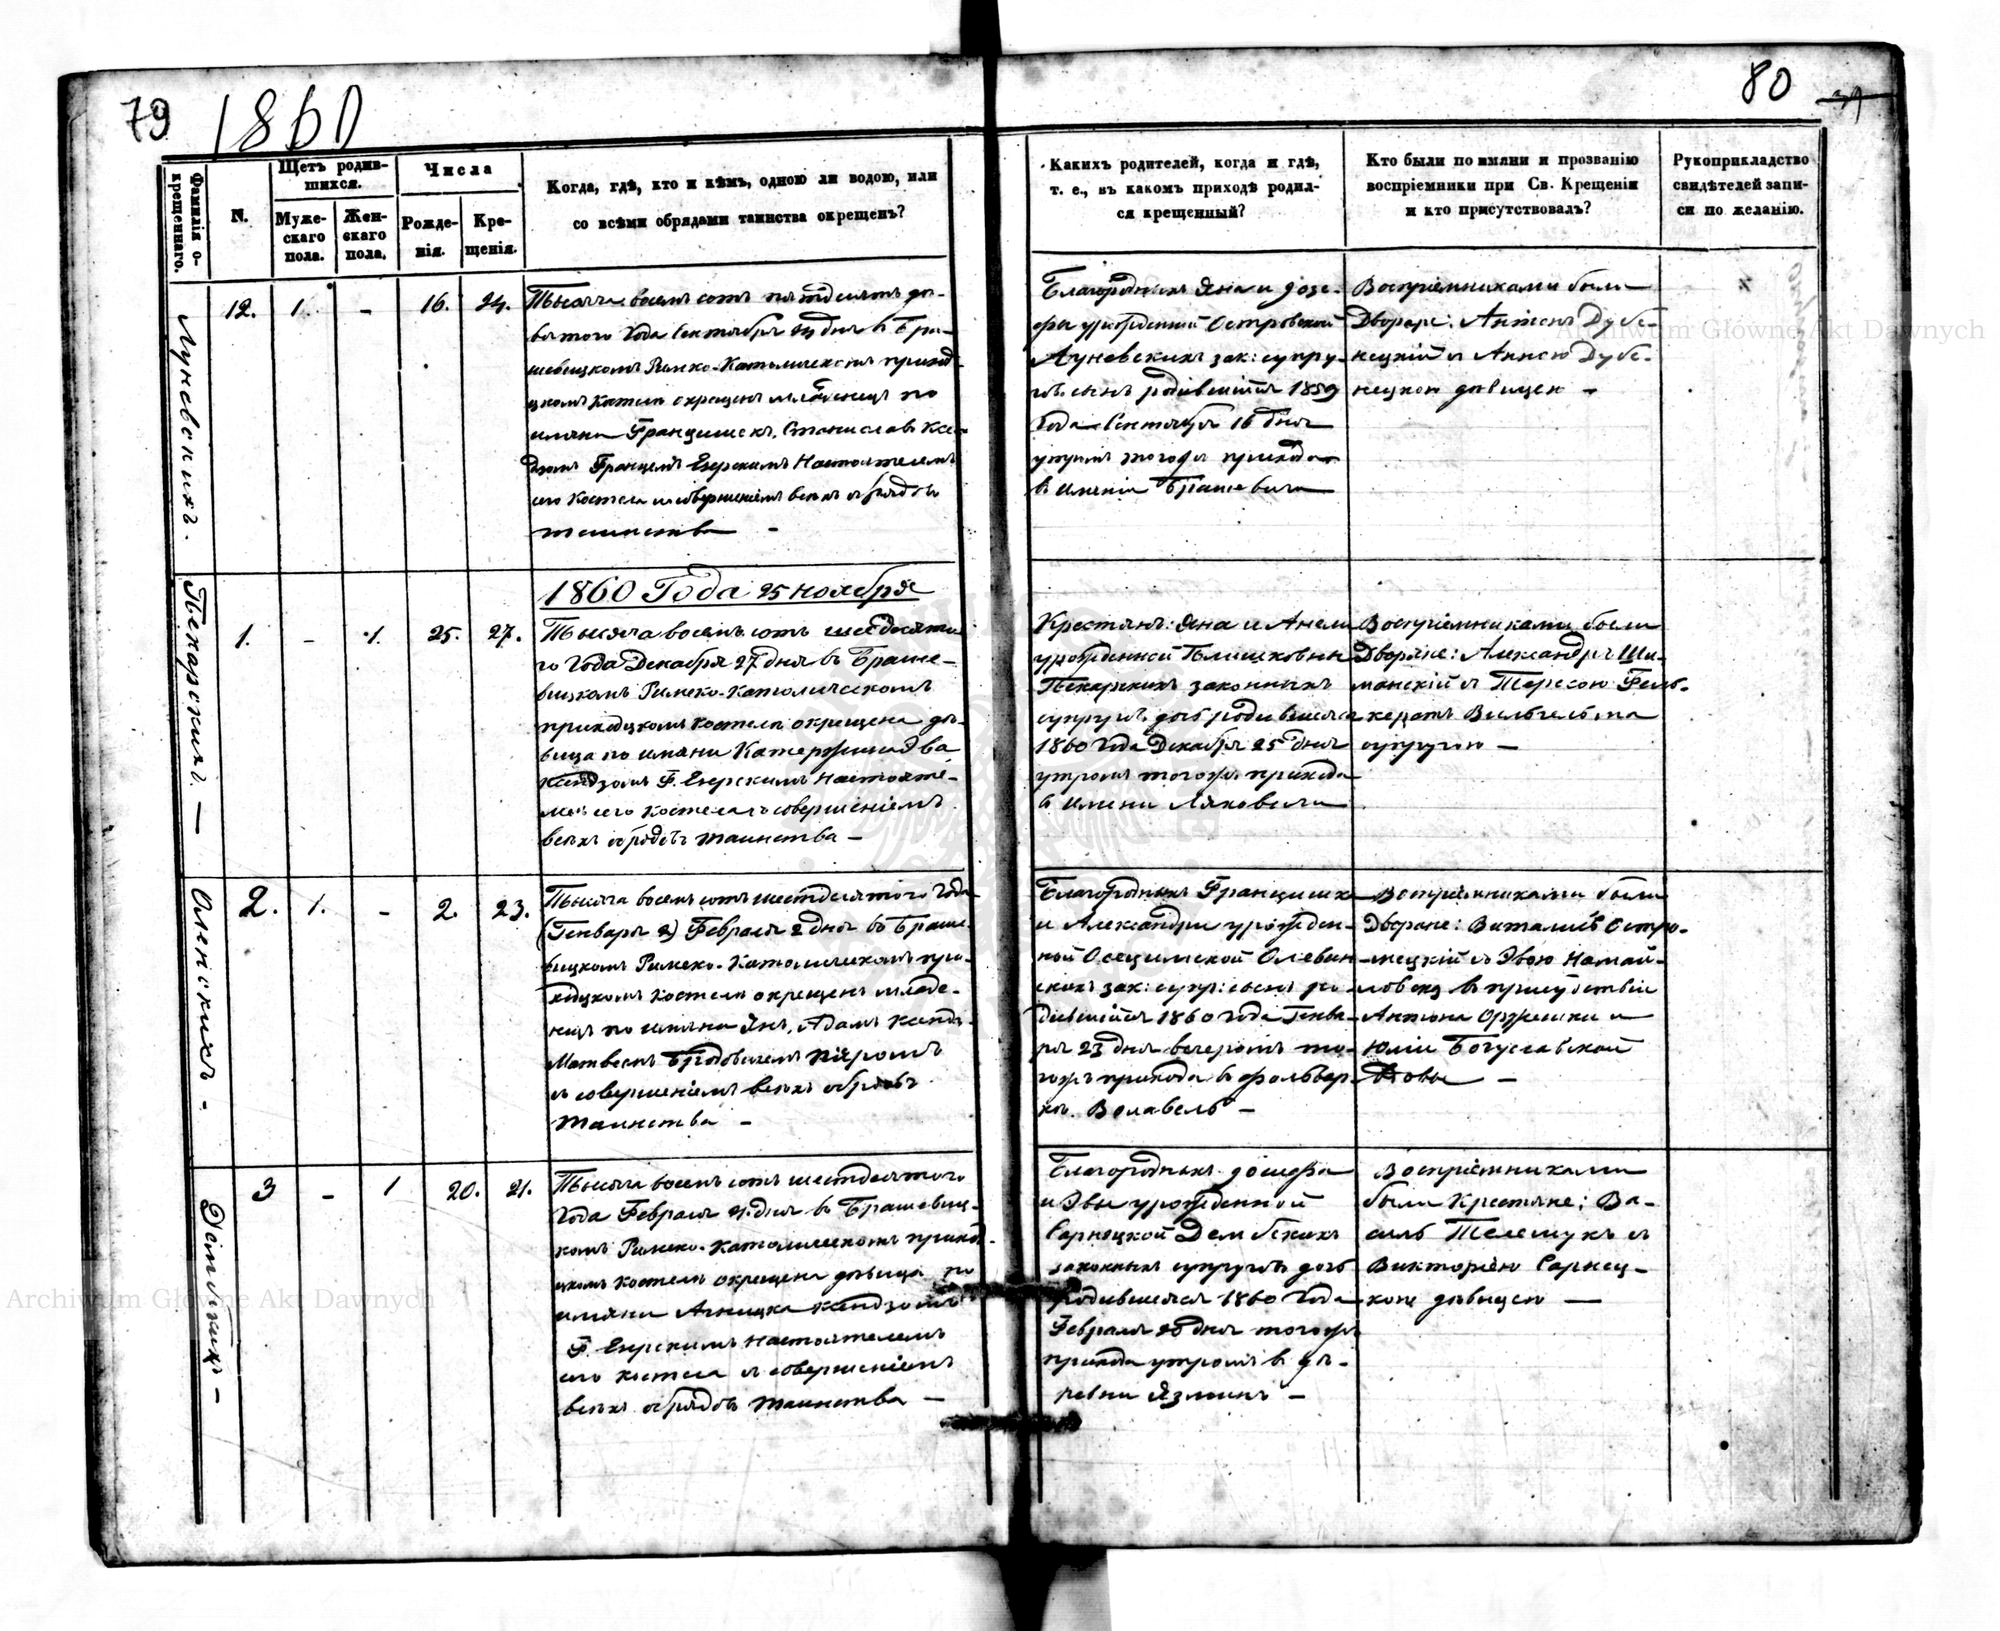 79
1860
80
Фамилія о-
крещеннаго.
N.
Щетъ родив-
шихся.
Муже-
скаго
пола.
Жен-
скаго
пола.
Числа
Рожде-
нія.
Кре-
щенія.
Когда, гдѣ, кто и кѣмъ, одною ли водою, или
со всѣми обрядами таинства окрещенъ?
Каких родителей, когда и гдѣ,
т. е., въ какомъ приходѣ родил-
ся крещенный?
Кто были по имяни и прозванію
воспріемники при Св. Крещеніи
и кто присутствовалъ?
Рукоприкладство
свидѣтелей запи-
си по желанію.
Луневскихъ.
12. 1. - 16. 24.
Тысяча восемь сотъ пятдесятъ де-
вятого Года Сентября 24 дня въ Бра-
шевицкомъ Римско-Католическомъ приход-
цкомъ Костелѣ окрещенъ младенецъ по
имяни Францишекъ, Станиславъ Ксен-
дзомъ Францемъ Езерскимъ Настоятелемъ
его Костела и совершеніемъ всѣхъ обрядовъ
таинства -
Благородныхъ Яна и Юзе-
фы урожденной Островской
Луневскихъ зак: супру-
говъ сынъ родившійся 1859
Года Сентября 16 дня
утромъ тогожъ прихода
въ имѣніи Брашевича
Воспріемниками были
Дворяне: Антонъ Дубе-
нецкій съ Анною Дубе-
нецкою дѣвицею -
Пекарскихъ. —
1860 Года 25 ноября
1. - 1. 25. 27.
Тысяча восемь сотъ шесдесято
го Года Декабря 27 дня въ Браше-
вицкомъ Римско-Католическомъ
приходцкомъ Костелѣ окрещена дѣ-
вица по имяни Катержина Эва
Ксендзомъ Ф. Езерскимъ Настояте-
лемъ сего Костела съ совершеніемъ
всѣхъ обрядовъ таинства -
Крестянъ: Яна и Анели
урожденной Климковны
Пекарскихъ законныхъ
супруговъ дочь родившаяся
1860 Года Декабря 25 дня
утромъ тогожъ прихода
въ имени Ляховичи
Воспріемниками были
Дворяне: Александръ Ши-
манскій съ Тересою Фель-
кератъ Вильгельма
супругою —
Оленскихъ -
2. 1. - 2. 23.
Тысяча восемь сотъ шестдесятого Года
(Генваря 2) Февраля 2 дня въ Браше-
вицкомъ Римско-Католическомъ при-
ходцкомъ Костелѣ окрещенъ младе-
нецъ по имяни Янъ, Адамъ Ксендз.
съ совершеніемъ всѣхъ обрядовъ
таинства -
Благородныхъ Францишка
и Александры урожден-
ной Осецимской Олевин-
скихъ зак: супр: сынъ ро-
дившійся 1860 Года Генва-
ря 23 дня вечеромъ то-
гожъ прихода въ фольвар-
кѣ Волавель -
Воспріемниками были
Дворяне: Виталисъ Остро-
мецкій съ Эвою Намай-
ловска въ присутствіи
Антона Оржешки и
Юліи Богуславской
вдовы —
3 - 1 20. 21.
Тысяча восемь сотъ шестдесятого
Года Февраля 21 дня въ Брашевиц-
комъ Римско-Католическомъ приход-
цкомъ Костелѣ окрещена дѣвица по
имяни Агнишка Ксендзомъ
Ф. Езерскимъ Настоятелемъ
сего костела съ совершеніемъ
всѣхъ обрядовъ таинства —
Благородныхъ Юзефа
и Эвы урожденной
Сарнецкой Дембскихъ
законныхъ супруговъ дочь
родившаяся 1860 Года
Февраля 20 дня тогожъ
прихода утромъ въ де-
ревни Язминъ -
Воспріемниками
были Крестяне: Ва-
силь Телешукъ съ
Викторіею Сарнец-
кою дѣвицею —
Archiwum Główne Akt Dawnych
Archiwum Główne Akt Dawnych